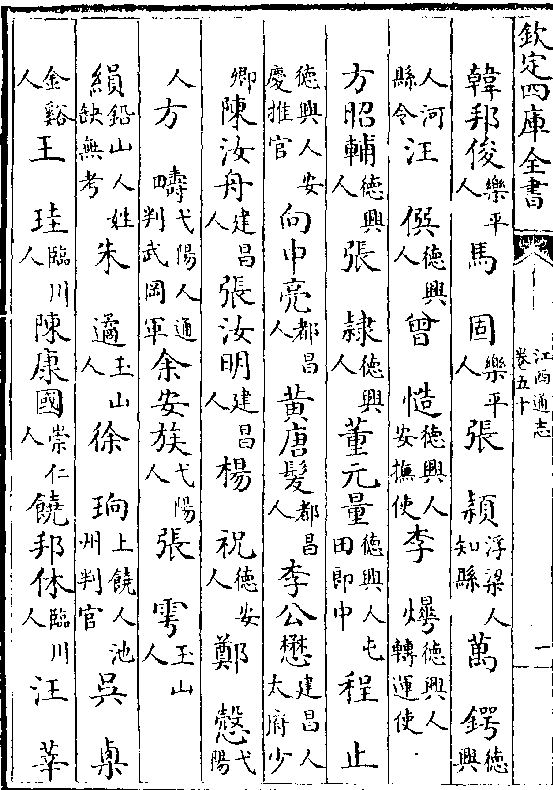 欽定四庫全書 江西通志 卷五十 一
韓邦俊樂平人馬固樂平人張頴浮梁人知縣萬鍔德興
人河縣令汪僎德興人曾慥德興人安撫使李德興人轉運使
方昭輔德興人張隸德興人董元量德興人屯田郎中程止
德興人安慶推官向申亮都昌人黃唐髮都昌人李公懋建昌人太府少
卿陳汝舟建昌人張汝明建昌人楊祝德安人鄭慤弋陽
人方疇弋陽人通判武岡軍余安族弋陽人張雩玉山人
縜鉛山人姓缺無考朱遹玉山人徐珦上饒人池州判官吳臬
金谿人王珪臨川人陳康國崇仁人饒邦休臨川人汪莘